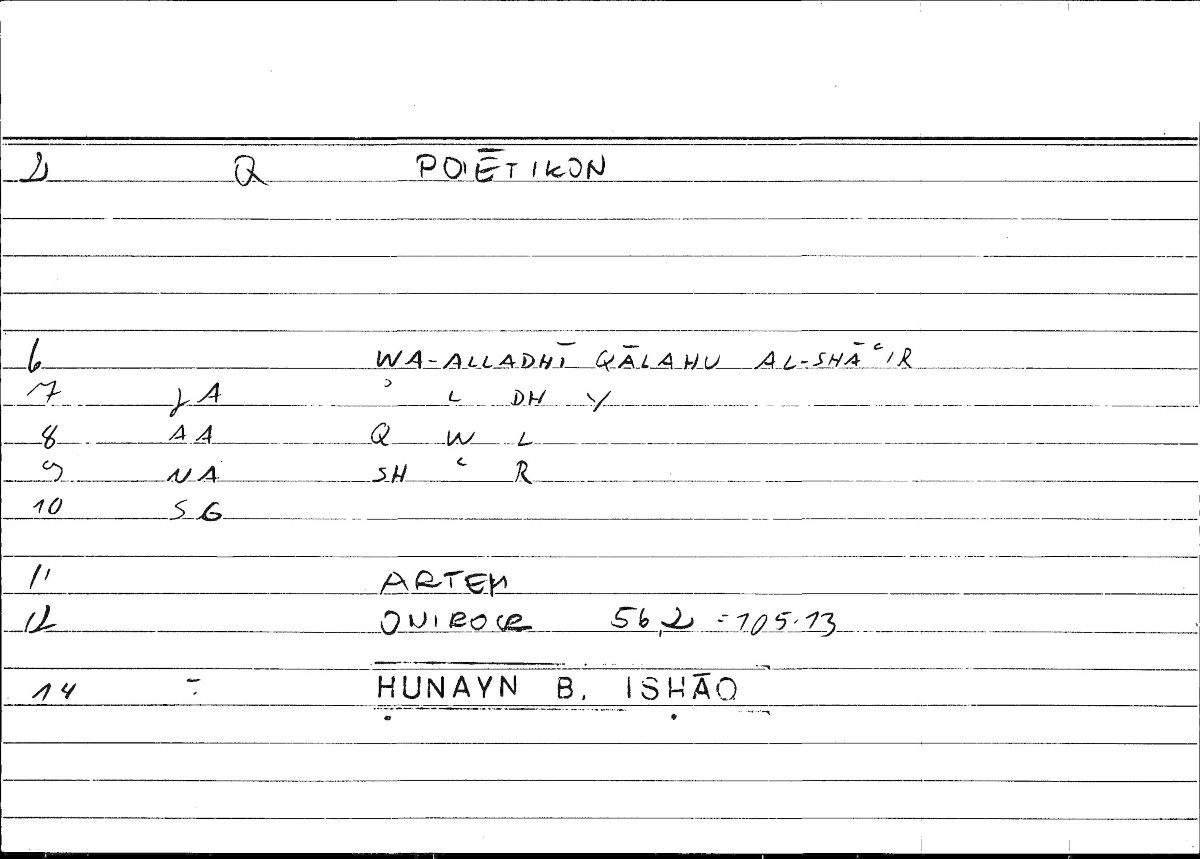 2 Q POIĒTIKON
6 WA-ALLADHĪ QĀLAHU AL-SHĀʿIR
7 JA ʾ L DH Y
8 AA Q W L
9 NA SH ʿ R
10 SG
11 ARTEM
12 ONIROCR 56,2 = 105.13
14 ÷ ḤUNAYN B. ISḤĀQ